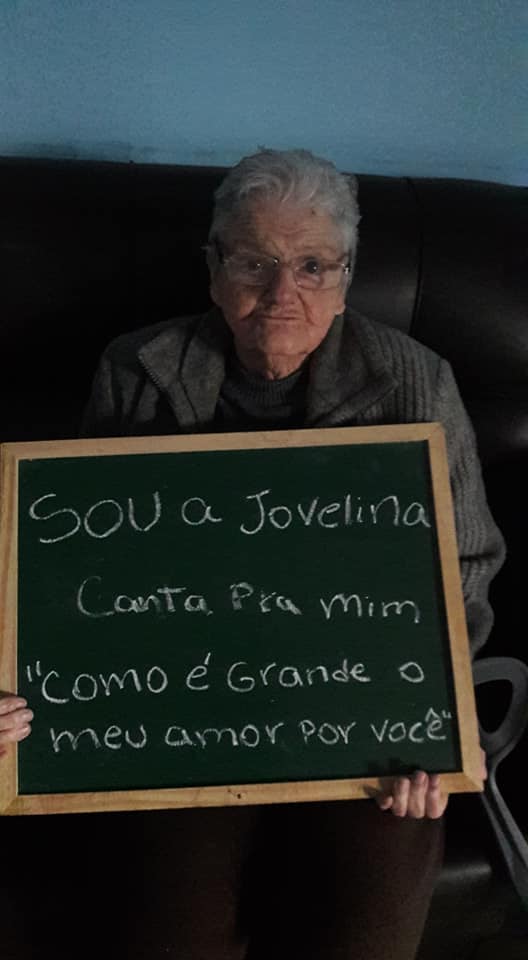 Sou a Jovelina
Canta Pra mim
"Como é Grande o
meu amor por você"